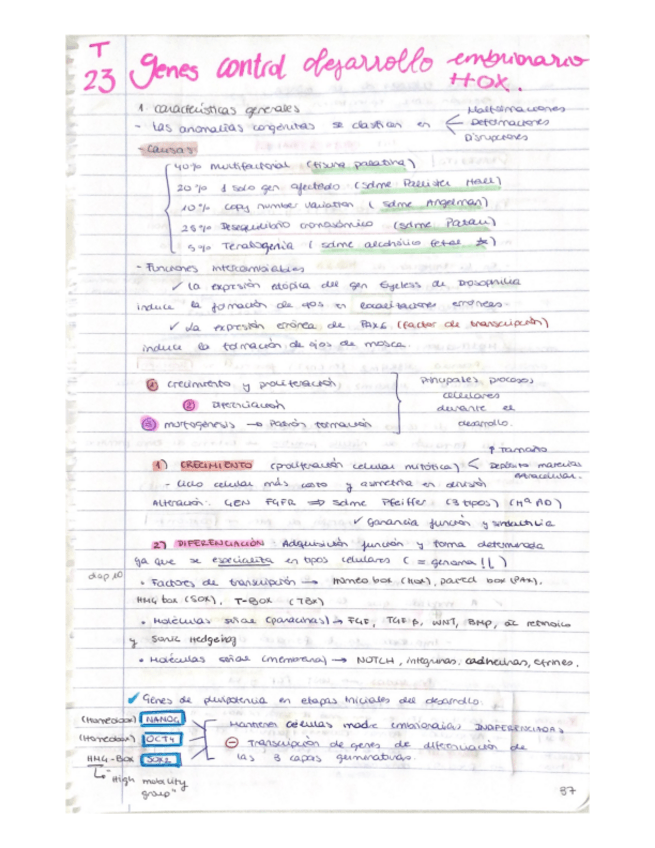 T 23 Genes control desarrollo embrionario HOX.
1. características generales
- Las anomalías congénitas se clasifican en < Malformaciones
Deformaciones
Disrupciones
- Causas:
40% multifactorial (fisura palatina)
20% 1 solo gen afectado (sdme Pallister Hall)
10% copy number variation (sdme Angelman)
25% Desequilibrio cromosómico (sdme Patau)
5% Teratogenia (sdme alcohólico fetal *)
- Funciones intercambiables
✓ La expresión ectópica del gen Eyeless de Drosophila
induce la formación de ojos en localizaciones erróneas.
✓ La expresión errónea de PAX6 (factor de transcripción)
induce la formación de ojos de mosca.
① crecimiento y proliferación
② Diferenciación
③ morfogénesis → Patrón formación
Principales procesos
celulares
durante el
desarrollo.
1) CRECIMIENTO (proliferación celular mitótica) < ↑ Tamaño
Depósito material
extracelular.
- Ciclo celular más corto y asimetría en división
Alteración: GEN FGFR ⇒ sdme Pfeiffer (3 tipos) (Hª AD)
✓ Ganancia función y sindactilia
2) DIFERENCIACIÓN. Adquisición función y forma determinada
ya que se especializa en tipos celulares ( = genoma !! )
diap 10
• Factores de transcripción → Homeo box (HOX), paired box (PAX),
HMG box (SOX), T-BOX (TBX)
• Moléculas señal (paracrinas) → FGF, TGF β, WNT, BMP, ác retinoico
y Sonic Hedgehog
• Moléculas señal (membrana) → NOTCH, integrinas, cadherinas, efrinas.
✓ Genes de pluripotencia en etapas iniciales del desarrollo:
(Homeobox) NANOG
(Homeobox) OCT4
HMG-BOX SOX2
↳ "High mobility
group"
Mantener células madre embrionarias INDIFERENCIADAS
⊖ Transcripción de genes de diferenciación de
las 3 capas germinativas.
87